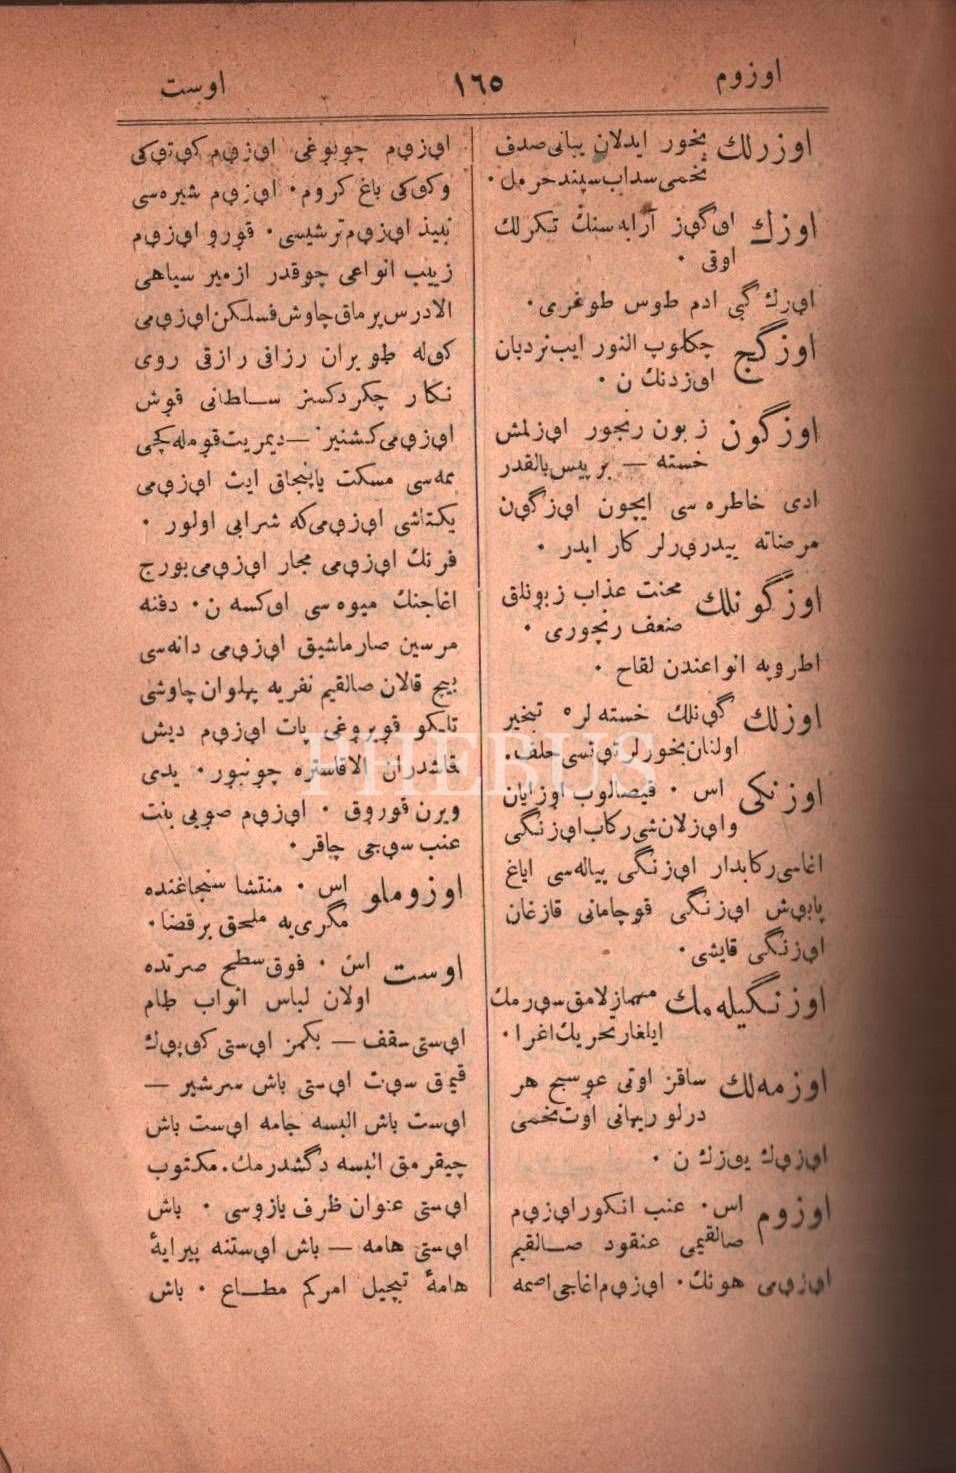 اوزوم ١٦٥ اوست
اوزرلك بخور ايدلان يبانى صدف
تخمى سداب سپند حرمل ٠
اوزك اىگوز آرابه سنك تكرلك
اوقى ٠
اىرك گبى ادم طوس طوغرى ٠
اوزگج چكلوب النور ايب نردبان
اىزدنك ن ٠
اوزگون زبون رنجور اىزلمش
خسته — بر پيس بالقدر
ادى خاطره سى ايچون اىزگون
مرضاته يبدريرلر كار ايدر ٠
اوزگونلك محنت عذاب زبونلق
ضعف رنجورى ٠
اطروپه انواعندن لقاح ٠
اوزلك گونلك خسته لره تبخير
اولنان بخورلر توتسى حلف ٠
اوزنكى اس ٠ فيصالوب اوزايان
و اىزلان شى ركاب اىزنگى
اغاسى ركابدار اىزنگى پياله سى اياغ
پاپوش اىزنگى قوچامانى قازغان
اىزنگى قايشى ٠
اوزنگيله مك مهمازلامق سورمك
ايلغار تحريك اغرا ٠
اوزمه لك ساقز اوتى عوسج هر
درلو ريهانى اوت تخمى
اىزوك يوزك ن ٠
اوزوم اس ٠ عنب انكور اىزوم
صالقيمى عنقود صالقيم
اىزومى هونك ٠ اىزوم اغاجى اصمه
اىزوم چوبوغى اىزوم كوتوكى
وكوكى باغ كروم ٠ اىزوم شيره سى
نبيذ اىزوم ترشيسى ٠ قورو اىزوم
زبيب انواعى چوقدر ازمير سياهى
الادرس پرماق چاوش فسلكن اىزومى
كوله طوبران رزاقى رازقى روى
نكار چكردكسز سلطانى قوش
اىزومى كشنير — ديمريت قومله كچى
ممه سى مسكت ياپنجاق ايت اىزومى
يكتاشى اىزومى كه شرابى اولور ٠
فرنك اىزومى مجار اىزومى بورج
اغاجنك ميوه سى اىكسه ن ٠ دفنه
مرسين صارماشيق اىزومى دانه سى
بيچ قالان صالقيم نفريه پهلوان چاوشى
تلكو قويروغى پات اىزوم ديش
قاشدران الاقاستره چونبور ٠ يدى
ويرن قوروق ٠ اىزوم صويى بنت
عنب سوجى چاقر ٠
اوزوملو اس ٠ منتشا سنجاغنده
مگرى يه ملحق بر قضا ٠
اوست اس ٠ فوق سطح صرتده
اولان لباس اثواب طام
اوستى سقف — بكمز اوستى كوپوك
قيمق سوت اوستى باش سرشير —
اوست باش البسه جامه اوست باش
چيقرمق البسه دگشدرمك ٠ مكتوب
اوستى عنوان ظرف يازوسى ٠ باش
اوستى هامه — باش اوستنه پيرايۀ
هامۀ تبجيل امركم مطاع ٠ باش
PHEBUS